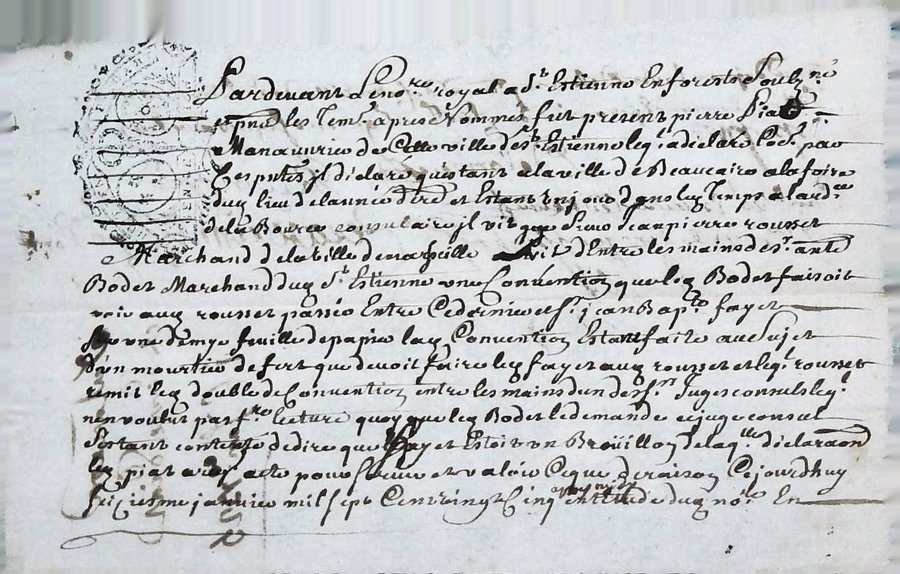 Pardevant le no.re royal a S.t Estienne En forests Soub.né
et pnts les Tem. apres Nommes fut present pierre Piat
Manouvrier de Cette ville de S.t Estienne leq. a declaré
Ces pntes il declaré questant a la ville de Beaucaire a la foire
dud lieu de lannée dre et Estant un jour dans led Temps a laud.ce
de la Bource consulaire il vit que Sieur Jean pierre rousset
Marchand de la ville de marseille Entre les mains de s.r ante
Bodet Marchand dud S.t Estienne une Convention que led Bodet faisoit
voir aud rousset passée Entre Ce dernier et s.r jean Bap.te fayet
Sur une demye feuille de papier lad Convention Estant faite au sujet
d'un mourtier de fert que devoit faire led fayet aud rousset et leq.l rousset
remit led double de Convention entre les mains dun des s.rs Juges consuls leq.l
nen voulut pas f.re lecture quoy que led Bodet le demande ce juge consul
Sestant contenté de dire que fayet Estoit un Brouillon de laq.lle declaraon
led piat a req acte pour servir et valoir Ce que de raison Cejourdhuy
seiziesme janvier mil sept Cent vingt Cinq apres midy en lettude dud no.re En